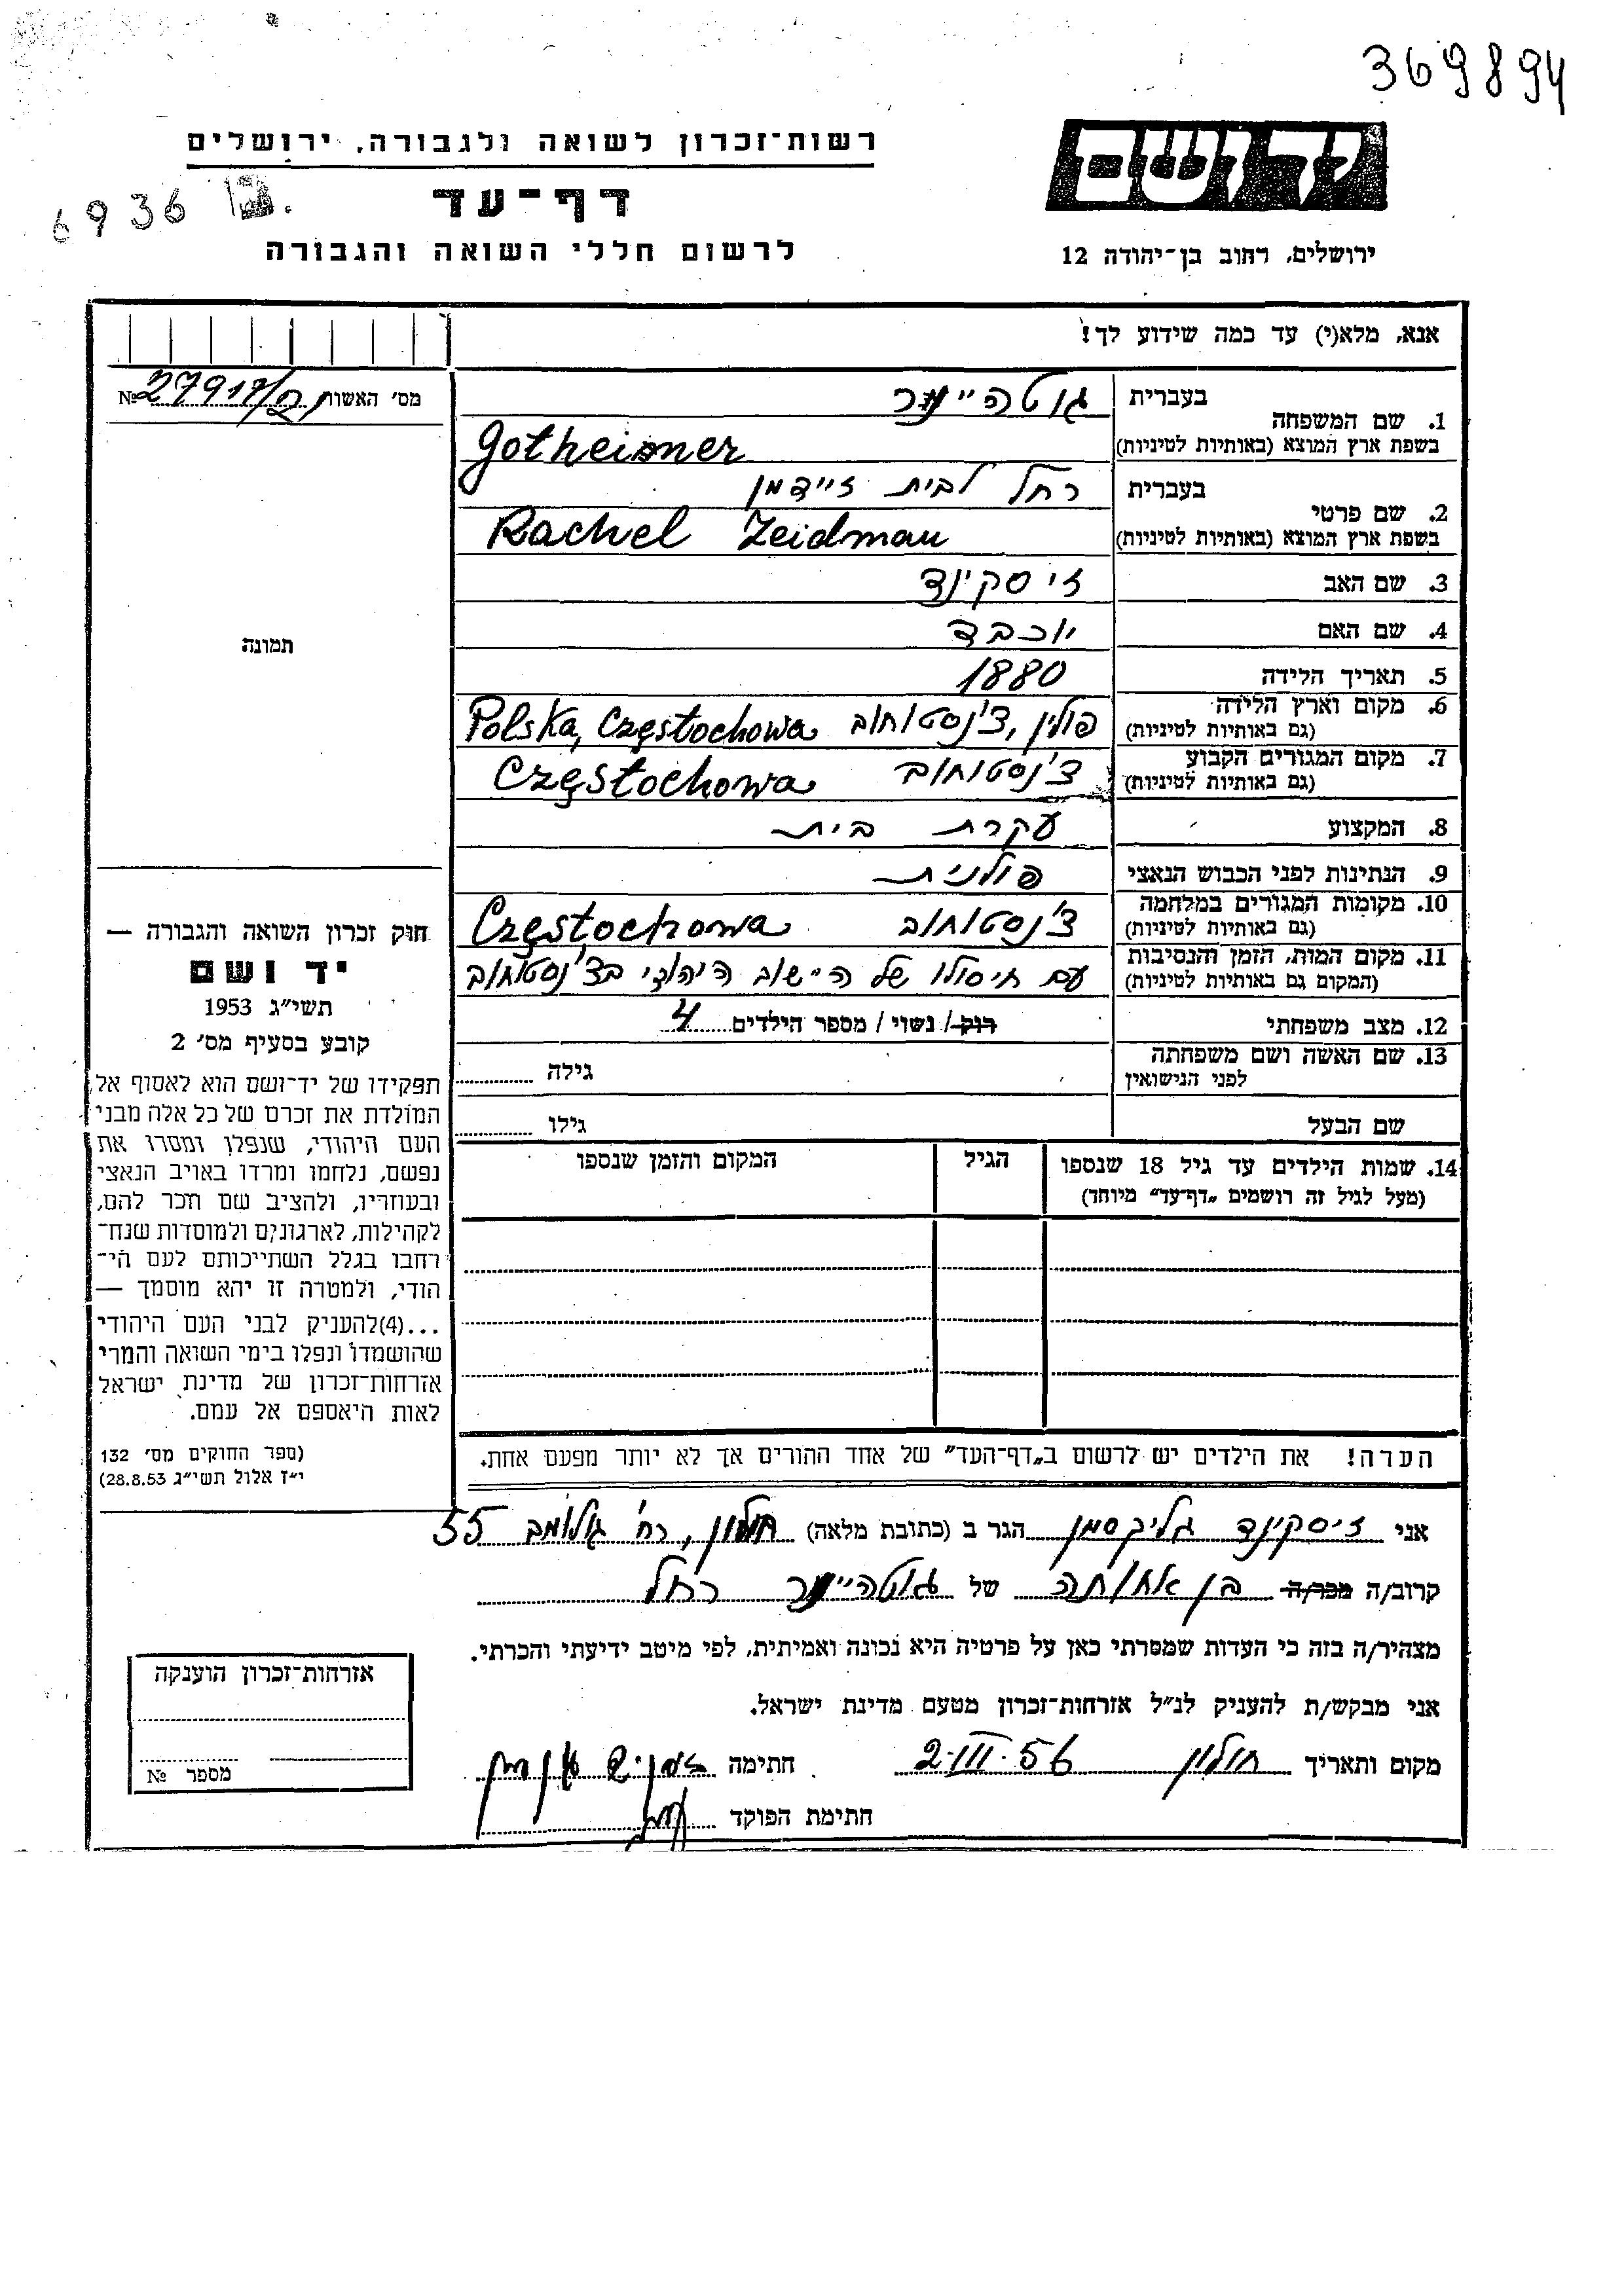 369894
רשות־זכרון לשואה ולגבורה, ירושלים
יד ושם
דף־עד
6936
לרשום חללי השואה והגבורה
ירושלים, רחוב בן־יהודה 12
אנא, מלא(י) עד כמה שידוע לך!
מס׳ האשות № 27917/
1. שם המשפחה
בעברית
בשפת ארץ המוצא (באותיות לטיניות) Gotheiner
2. שם פרטי
בעברית רחל לבית זיידמן
בשפת ארץ המוצא (באותיות לטיניות) Rachel Zeidman
3. שם האב זיסקינד
4. שם האם יוכבד
תמונה
5. תאריך הלידה 1880
6. מקום וארץ הלידה
(גם באותיות לטיניות) פולין, צ'נסטוחוב Polska, Częstochowa
7. מקום המגורים הקבוע
(גם באותיות לטיניות) צ'נסטוחוב Częstochowa
8. המקצוע עקרת בית
9. הנתינות לפני הכבוש הנאצי פולנית
10. מקומות המגורים במלחמה
(גם באותיות לטיניות) צ'נסטוחוב Częstochowa
11. מקום המות, הזמן והנסיבות
(המקום גם באותיות לטיניות) עם חיסולו של הישוב היהודי בצ'נסטוחוב
12. מצב משפחתי רוק / נשוי / מספר הילדים 4
13. שם האשה ושם משפחתה
לפני הנישואין גילה
שם הבעל גילו
14. שמות הילדים עד גיל 18 שנספו
(מעל לגיל זה רושמים „דף־עד״ מיוחד)
הגיל
המקום והזמן שנספו
חוק זכרון השואה והגבורה —
יד ושם
תשי״ג 1953
קובע בסעיף מס׳ 2
תפקידו של יד־ושם הוא לאסוף אל
המולדת את זכרם של כל אלה מבני
העם היהודי, שנפלו ומסרו את
נפשם, נלחמו ומרדו באויב הנאצי
ובעוזריו, ולהציב שם וזכר להם,
לקהילות, לארגונים ולמוסדות שנח־
רחבו בגלל השתייכותם לעם הי־
הודי, ולמטרה זו יהא מוסמך —
...(4) להעניק לבני העם היהודי
שהושמדו ונפלו בימי השואה והמרי
אזרחות־זכרון של מדינת ישראל
לאות היאספם אל עמם.
(ספר החוקים מס׳ 132
י״ז אלול תשי״ג 28.8.53)
הערה! את הילדים יש לרשום ב„דף־העד״ של אחד ההורים אך לא יותר מפעם אחת.
אני זיסקינד גליקסמן הגר ב (כתובת מלאה) חולון, רח' גולומב 55
קרוב/ה מכר/ה בן אחותה של רחל
מצהיר/ה בזה כי העדות שמסרתי כאן על פרטיה היא נכונה ואמיתית, לפי מיטב ידיעתי והכרתי.
אני מבקש/ת להעניק לנ״ל אזרחות־זכרון מטעם מדינת ישראל.
מקום ותאריך חולון 2.III.56 חתימה
חתימת הפוקד
אזרחות־זכרון הוענקה
מספר №